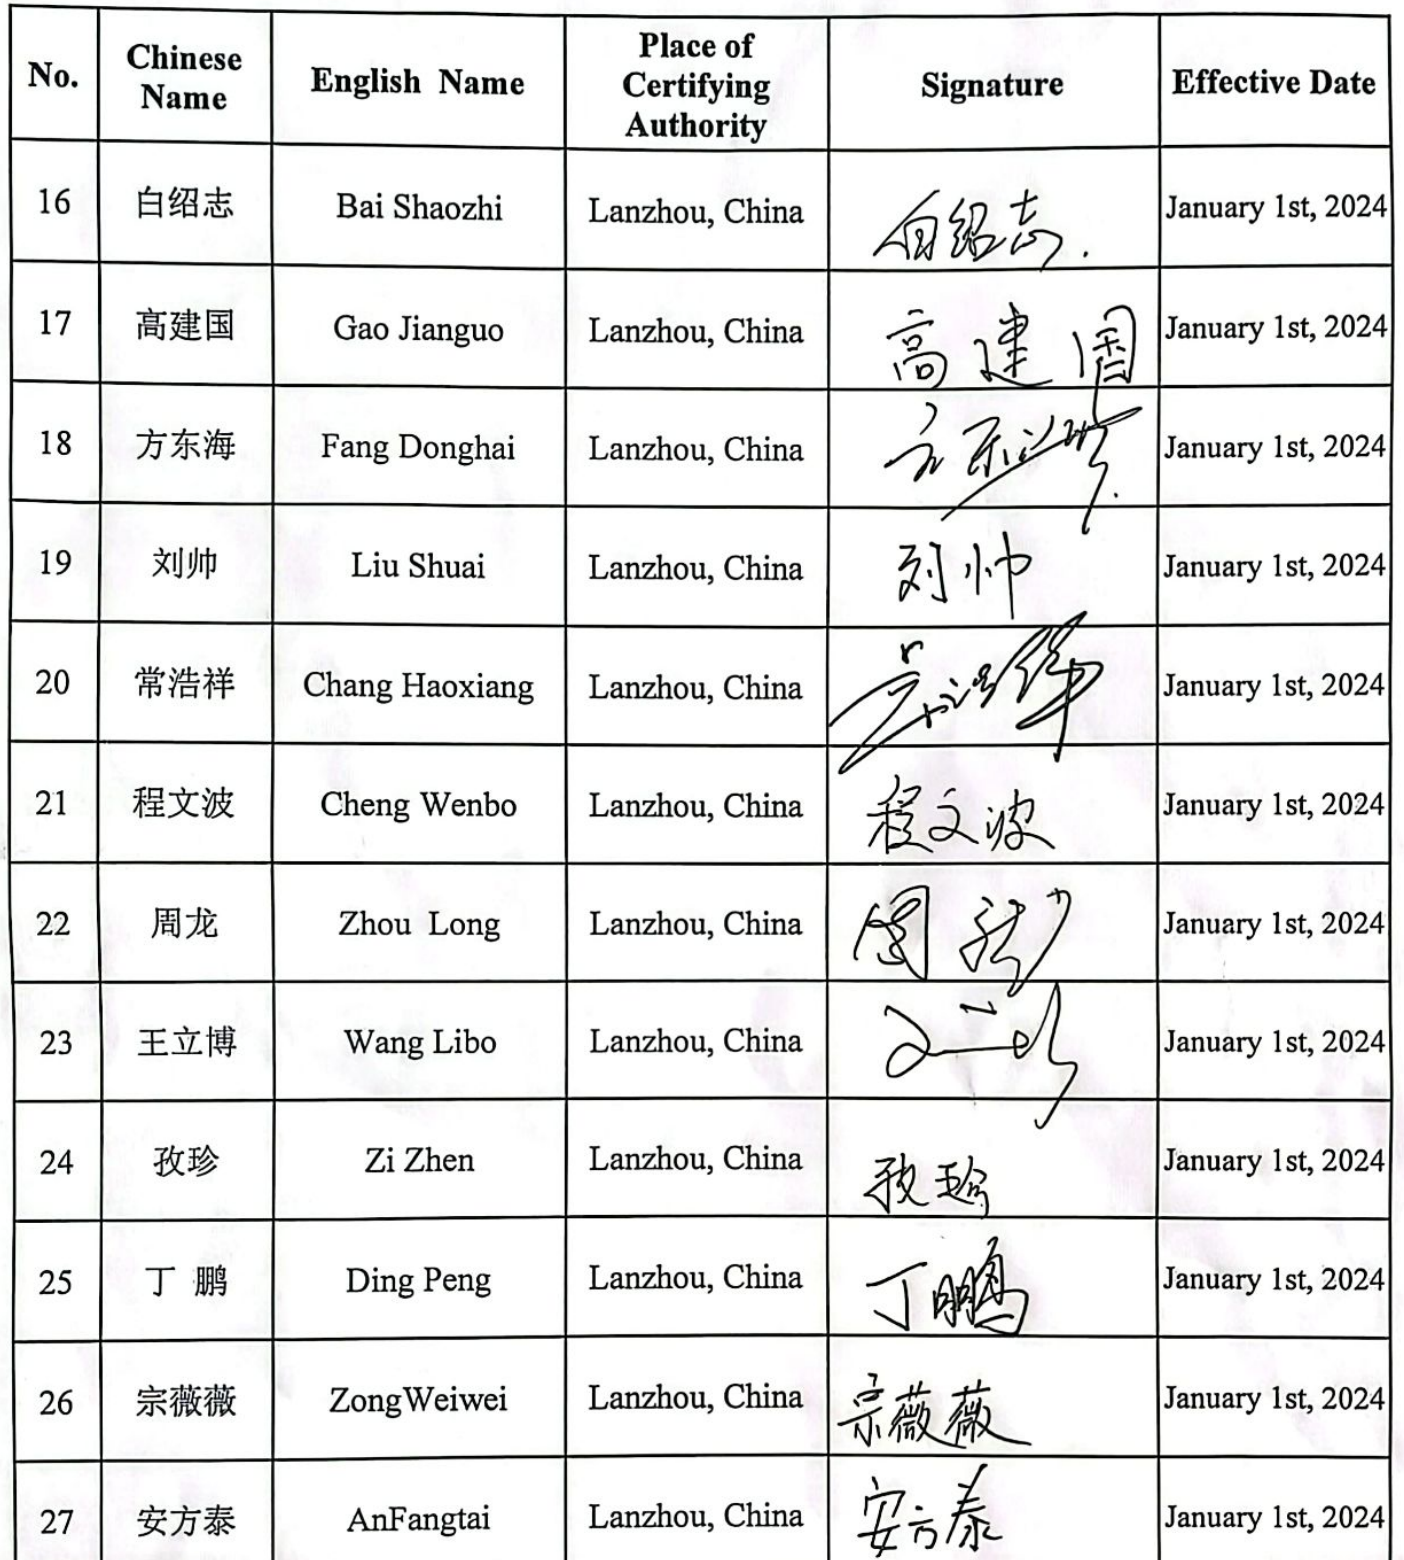 No. Chinese Name English Name Place of Certifying Authority Signature Effective Date
16 白绍志 Bai Shaozhi Lanzhou, China 白绍志. January 1st, 2024
17 高建国 Gao Jianguo Lanzhou, China 高建国 January 1st, 2024
18 方东海 Fang Donghai Lanzhou, China 方东海 January 1st, 2024
19 刘帅 Liu Shuai Lanzhou, China 刘帅 January 1st, 2024
20 常浩祥 Chang Haoxiang Lanzhou, China January 1st, 2024
21 程文波 Cheng Wenbo Lanzhou, China 程文波 January 1st, 2024
22 周龙 Zhou Long Lanzhou, China 周龙 January 1st, 2024
23 王立博 Wang Libo Lanzhou, China January 1st, 2024
24 孜珍 Zi Zhen Lanzhou, China 孜珍 January 1st, 2024
25 丁 鹏 Ding Peng Lanzhou, China 丁鹏 January 1st, 2024
26 宗薇薇 ZongWeiwei Lanzhou, China 宗薇薇 January 1st, 2024
27 安方泰 AnFangtai Lanzhou, China 安方泰 January 1st, 2024